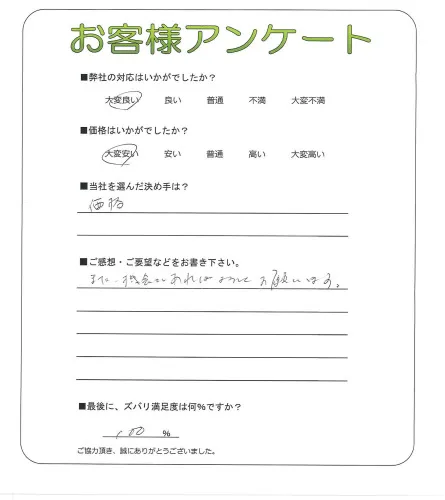 お客様アンケート
■弊社の対応はいかがでしたか？
大変良い 良い 普通 不満 大変不満
■価格はいかがでしたか？
大変安い 安い 普通 高い 大変高い
■当社を選んだ決め手は？
価格
■ご感想・ご要望などをお書き下さい。
また、機会があればよろしくお願いします。
■最後に、ズバリ満足度は何%ですか？
100 %
ご協力頂き、誠にありがとうございました。